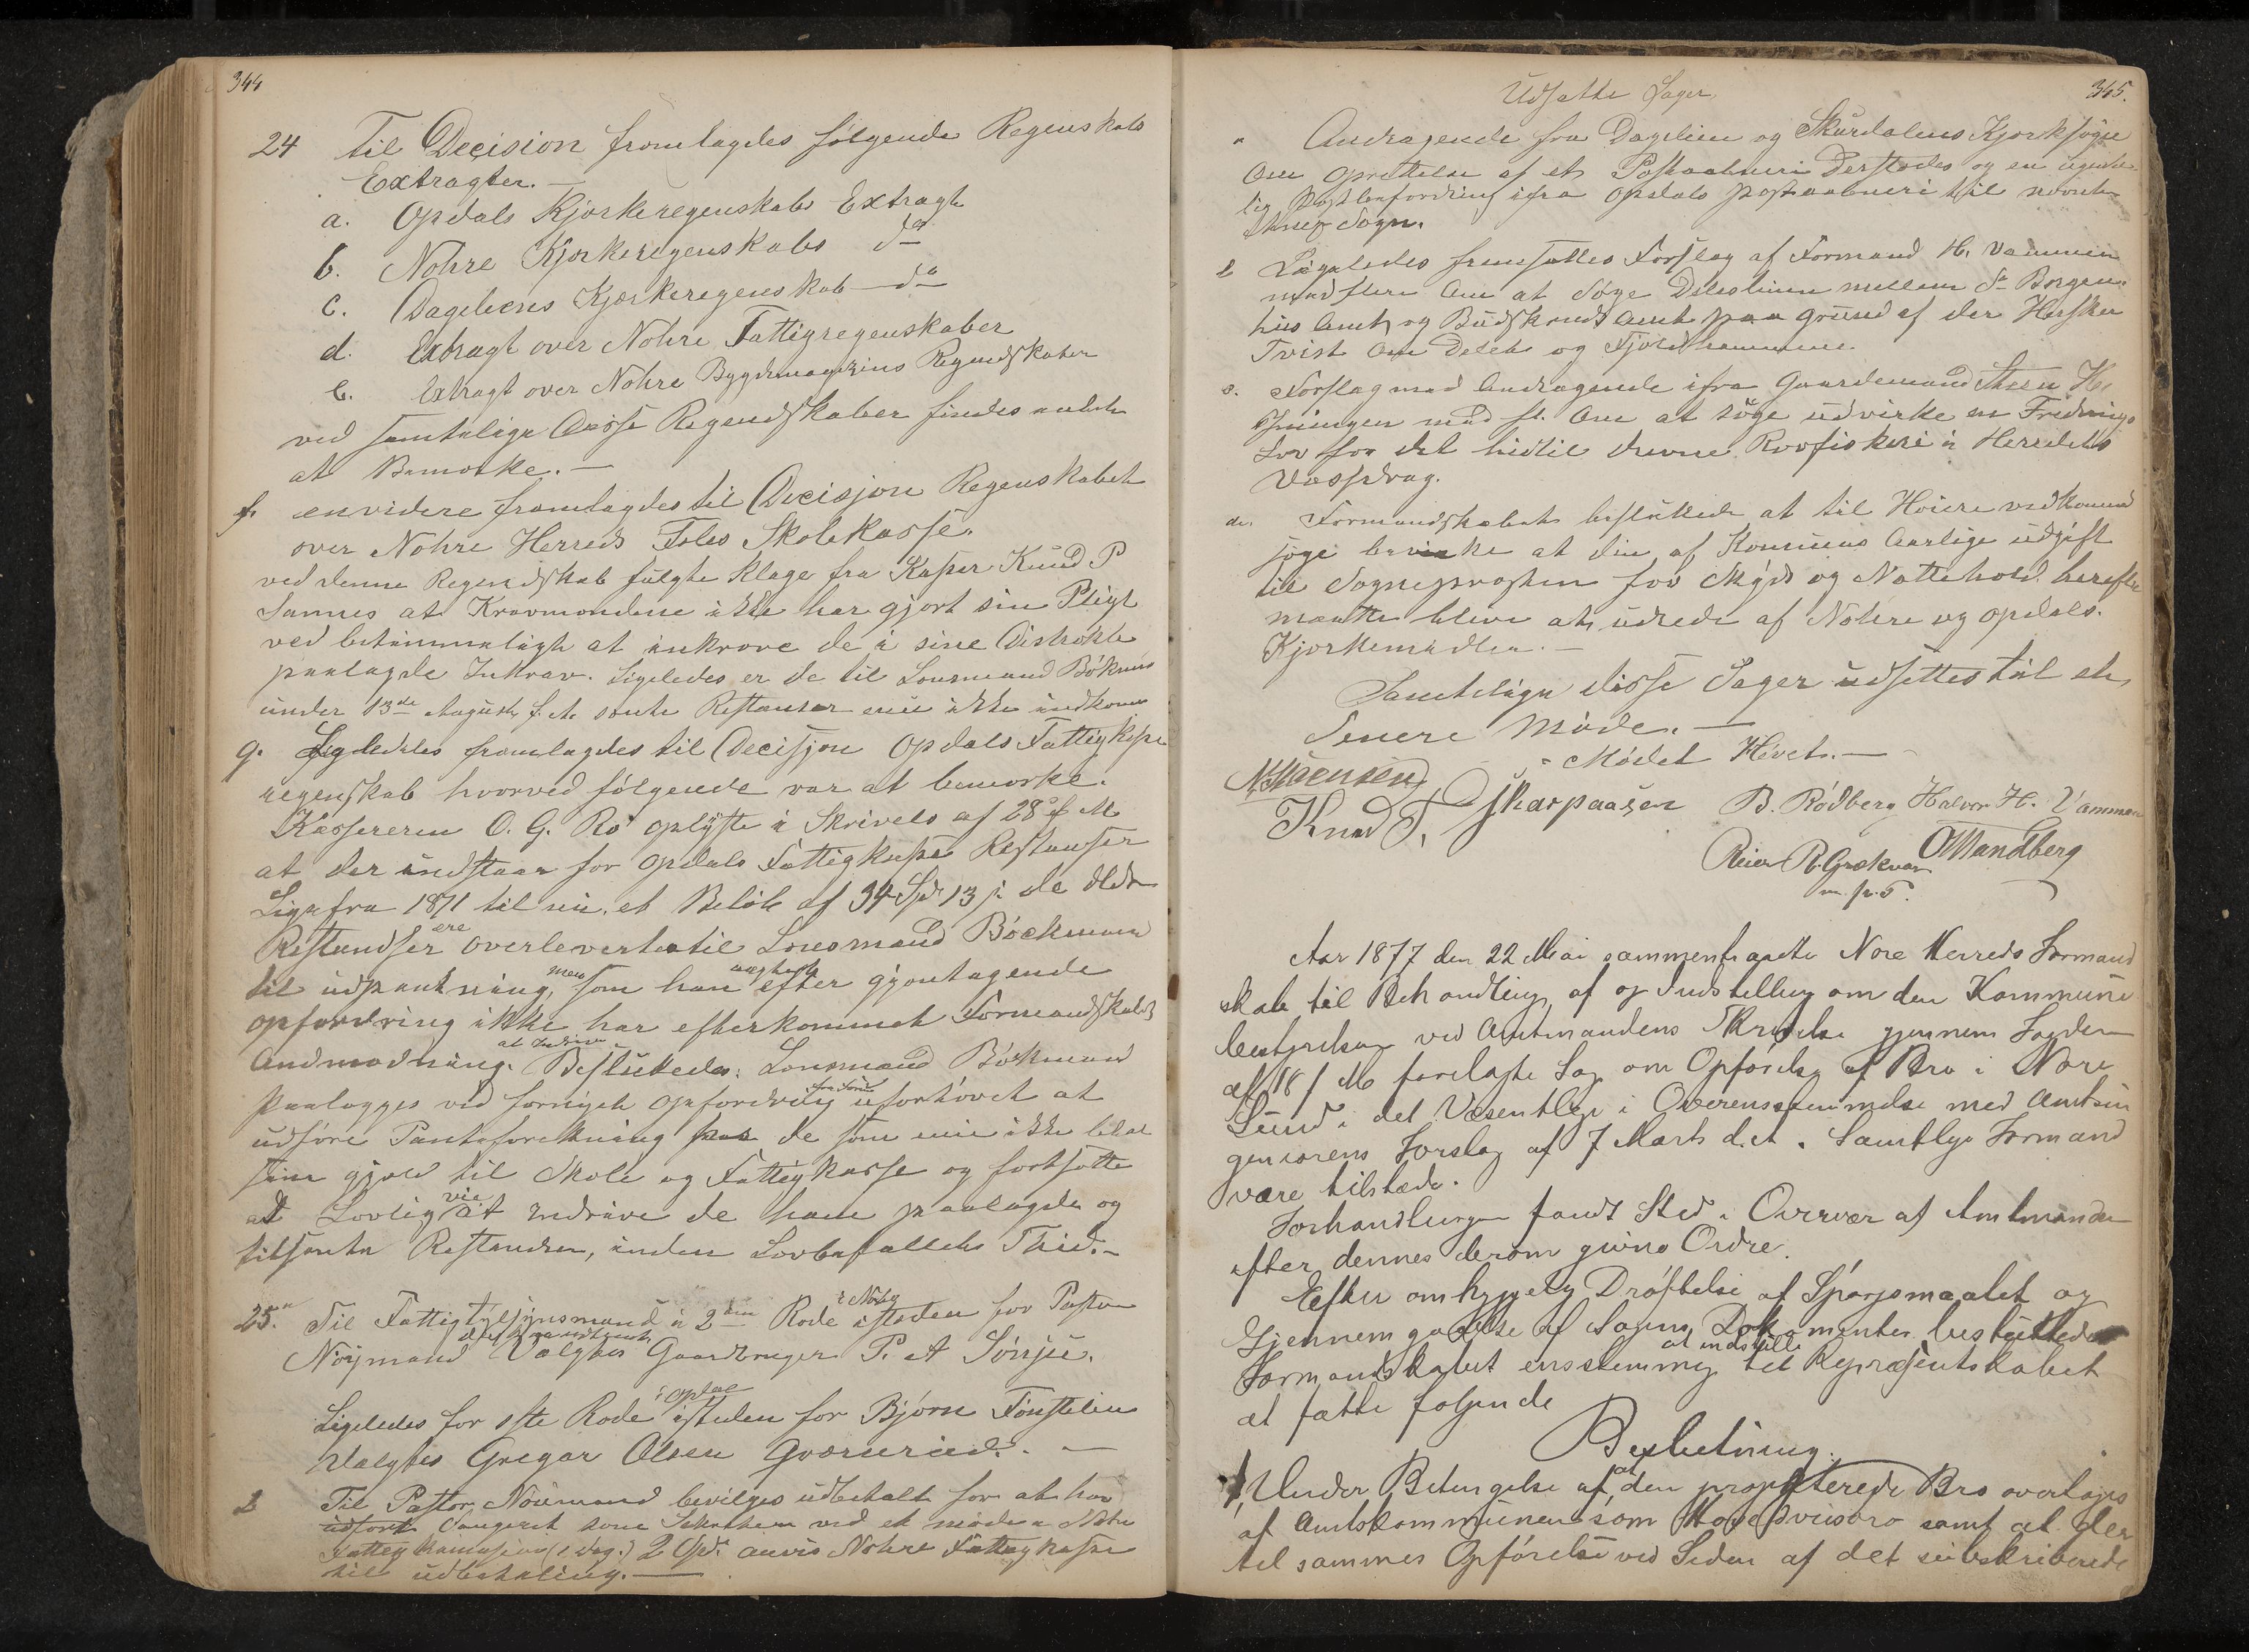 344
24 Til Decision fremlagdes følgende Regenskabs
Extragter. —
a. Opdals Kjørkeregenskabs Extragt
b. Nohre Kjørkeregenskabs do
c. Dagliens Kjørkeregenskab do
d. Extragt over Nohre Fattigregenskaber
e. Extragt over Nohre Bygdemagazins Regendskaber
ved samtelige disse Regendskaber findes
at Bemærke. —
f. envidere fremlagdes til Decisjon Regenskabet
over Nohre Herreds Skolekasse.
ved denne Regendskab fulgte klage fra Kasser Knud P
Sannes at Kravmændene ikke har gjort sin Pligt
ved betimmeligt at inkræve de i sine Distrikte
paalagde Inkrav. Ligeledes er de til Lensmand Bökman
under 13de August f. A. sente Restanser enu ikke indkomn
g. Ligeledes fremlagdes til Decisjon Opdals Fattigkasse
regenskab hvorved følgende var at bemærke.
Kassereren O. G. Rö oplyste i Skrivels af 28 f M
at der indstaar for Opdals Fattigkasse Restanser
Lige fra 1871 til nu, et Belöb af 34 Spd 13 s. de
Restandser ere overleverte til Lensmand Böckmann
til udpantning, men som han uagtet efter gjentagende
opfordring ikke har efterkommet Formandskabets
Andmodning. Besluttedes: Lensmand Böckmand
paalægges ved fornyet opfordring ufortövet at
udföre Panteforetning hos de som enu ikke betal
sin gjæld til Skole og Fattigkasse og fortsætte
Lovlig vie at indrive de ham paalagde og
tilsente Restandser, inden Lovbefallets Thid. —
25. a Til Fattigtylsynsmand i 2den Rode i Nohre isteden for Pastor
Nöijmand Valgtes Gaardbruger P. A Sönju.
Ligeledes for 1ste Rode i Opdal isteden for Björn Tönstelien
Valgtes Gregar Olsen Gværuriud. —
b Til Pastor Nöimand bevilges udbetalt for at hav
udfört som Sekretær ved et möde i Nohre
Fattig komission (1 dag.) 2 Spd. anvis Nohre Fattigkasse
til udbetaling. —
Udsatte Sager
345.
a Andragende fra Daglien og Skurdalens Kjørksogne
Om oprettelse af et Postaabneri Dersteds og en ugentli
lig Postbefordring ifra Opdals postaabneri til
Sogn.
b Ligeledes fremsattes Forslag af Formand H. Vammen
med flere Om at Söge Deleslinien mellem S Bergen
hus Amt og Budskruds Amt paa grund af der Hersker
Tvist Om Delet og Fjöldhammene.
c. Forslag med Andragende ifra Gaardemand Steen H.
med fl. Om at söge udvirke en Frednings
Lov for det hidtil drevne Rovfiskeri i Herredets
Vasdrag.
d. Formandskabet besluttede at til Höiere vedkomend
söge bevirke at den af Komunens Aarlige udgift
til Sogneprosten for Skyds og Nattehold herefter
maatte blive at udrede af Nohre og opdals.
Kjørkemidler. —
Samtelige disse Sager udsettes til et
Senere Möde. —
Mödet Hævet. —
Knud T. Skarpaasen B. Rödberg Halvor H. Vammen
Reier R. Grøkvam O Wandberg
m. p. P.
Aar 1877 den 22 Mai sammentraadte Nore Herreds Formand
skab til Behandling af og Indstilling om den Kommune
bestyrelsen ved Amtmandens Skrivelse gjennem Fogden
af 18/ M forelagte Sag om Opförelse af Bro i Nore
Sund i det Væsentlige i Overensstemmelse med Amtsin
geniörens Forslag af 7 Marts d. A. Samtlige Formænd
vare tilstæde.
Forhandlingen fandt Sted i Overvær af Amtmanden
efter dennes derom givne Ordre.
Efter omhyggelig Dröftelse af Spörgsmaalet og
Gjennemgaaelse af Sagens Dokumenter besluttede
Formandskabet enstemmig at indstille til Repræsentskabet
at fatte følgende
Beslutning:
1, Under Betingelse af at den projekterede Bro overtages
af Amtskommunen som Hovedveisbro samt at der
til sammes Opförelse ved Siden af det subskriberede